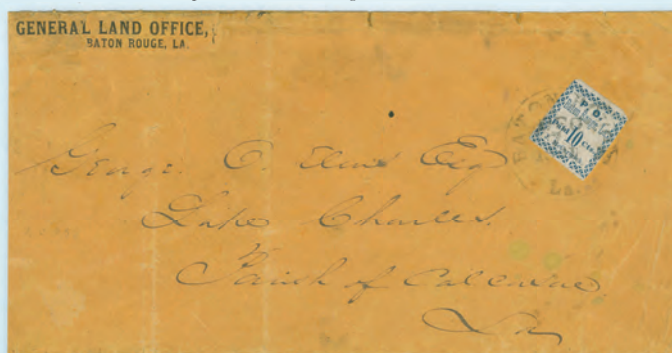 GENERAL LAND OFFICE,
BATON ROUGE, LA.
P. O.
Paid 10 Cts.
BATON
La.
George O. Elms Esq
Lake Charles.
Parish of Calcasieu
La